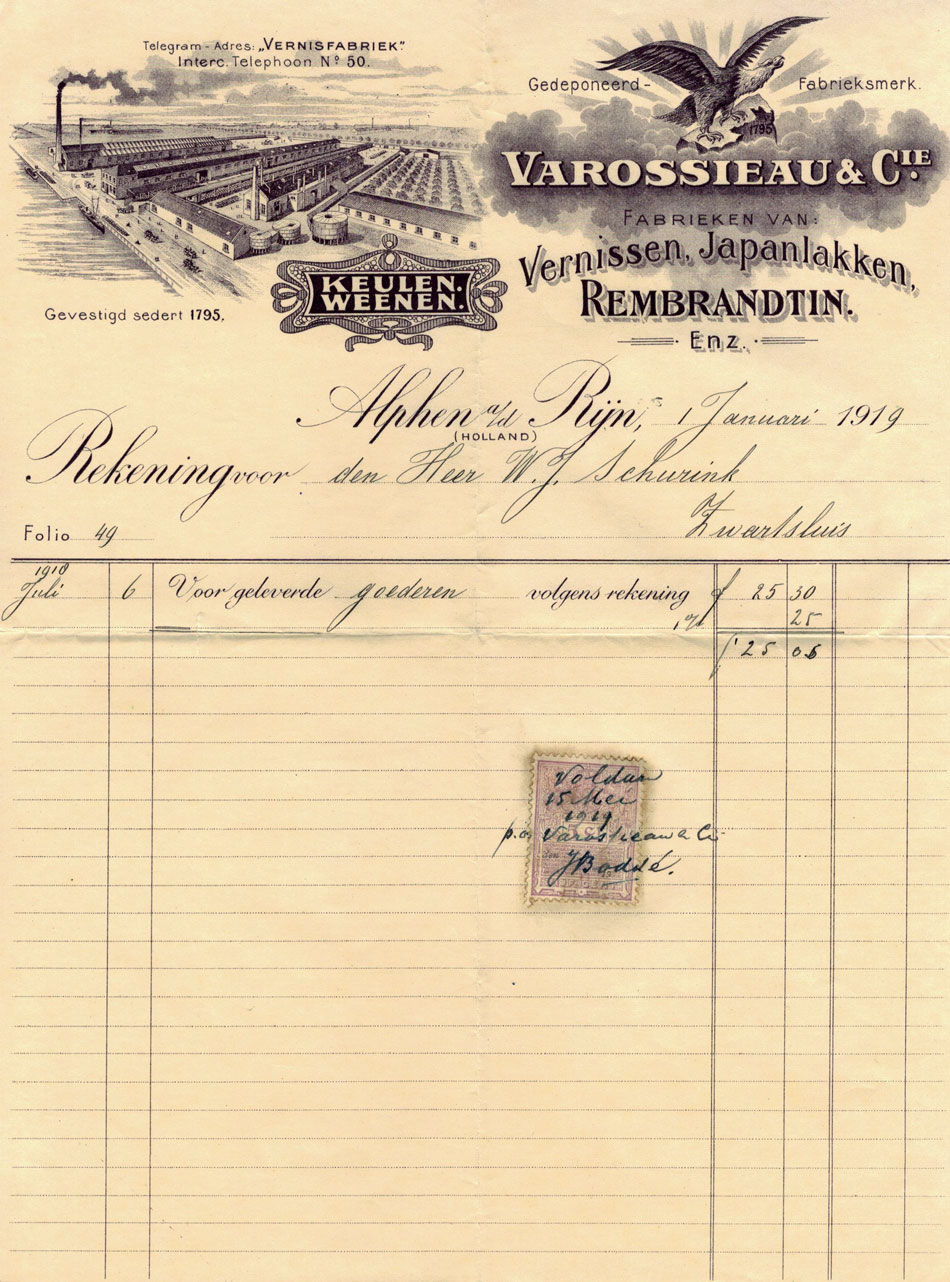 Telegram - Adres: „VERNISFABRIEK"
Interc. Telephoon Nº 50.
Gedeponeerd - Fabrieksmerk.
1795
VAROSSIEAU & CIE.
FABRIEKEN VAN:
Vernissen, Japanlakken,
REMBRANDTIN.
Enz.
KEULEN.
WEENEN.
Gevestigd sedert 1795.
Alphen a/d Rijn, 1 Januari 1919
(HOLLAND)
Rekening voor den Heer W. J. Schurink
Zwartsluis
Folio 49
1918
Juli 6 Voor geleverde goederen volgens rekening f 25 30
1 % 25
f 25 05
Voldaan
15 Mei
1919
Varossieau & Cie
JBoddé.